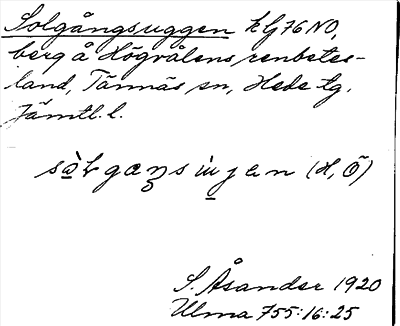 Solgångsuggen kG76NO,
berg å Högvålens renbetes-
land, Tännäs sn, Hede tg.
Jämtl. l.
(H, Õ)
S. Åsander 1920
Ulma 755:16:25